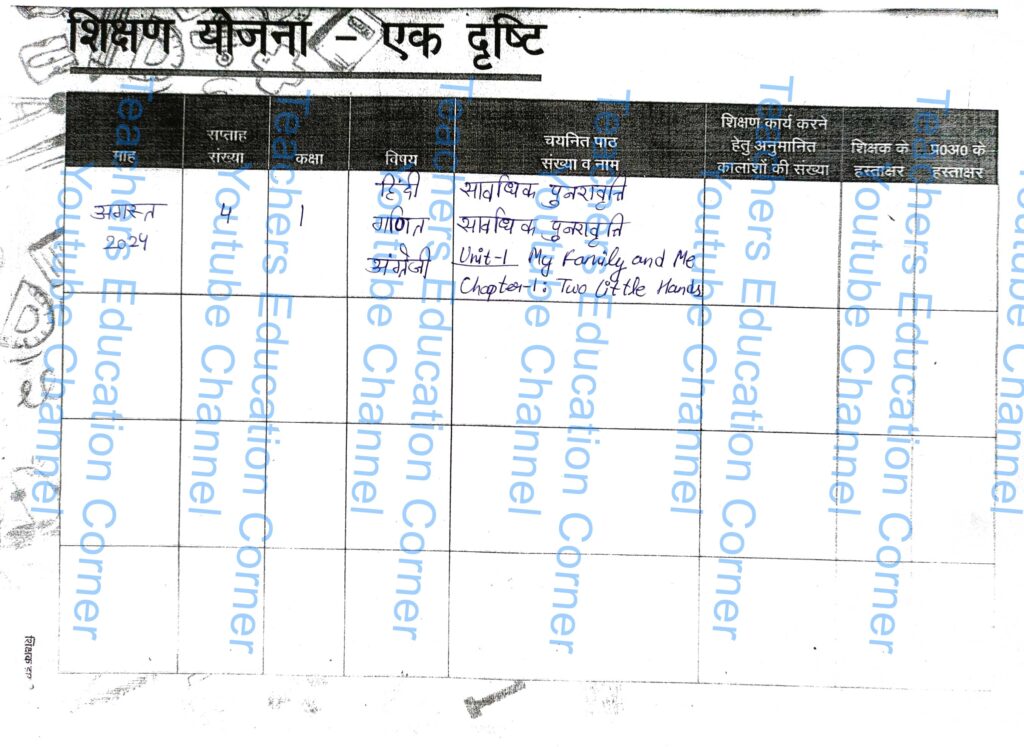 शिक्षण योजना – एक दृष्टि
माह
सप्ताह
संख्या
कक्षा
विषय
चयनित पाठ
संख्या व नाम
शिक्षण कार्य करने
हेतु अनुमानित
कालाशों की संख्या
शिक्षक के
हस्ताक्षर
प्र0अ0 के
हस्ताक्षर
अगस्त
2024
4
1
हिंदी
सावधिक पुनरावृत्ति
गणित
सावधिक पुनरावृत्ति
अंग्रेजी
Unit-1 My Family and Me
Chapter-1: Two Little Hands
Teachers Education Corner
Youtube Channel
Teachers Education Corner
Youtube Channel
Teachers Education Corner
Youtube Channel
Teachers Education Corner
Youtube Channel
Teachers Education Corner
Youtube Channel
Youtube Channel